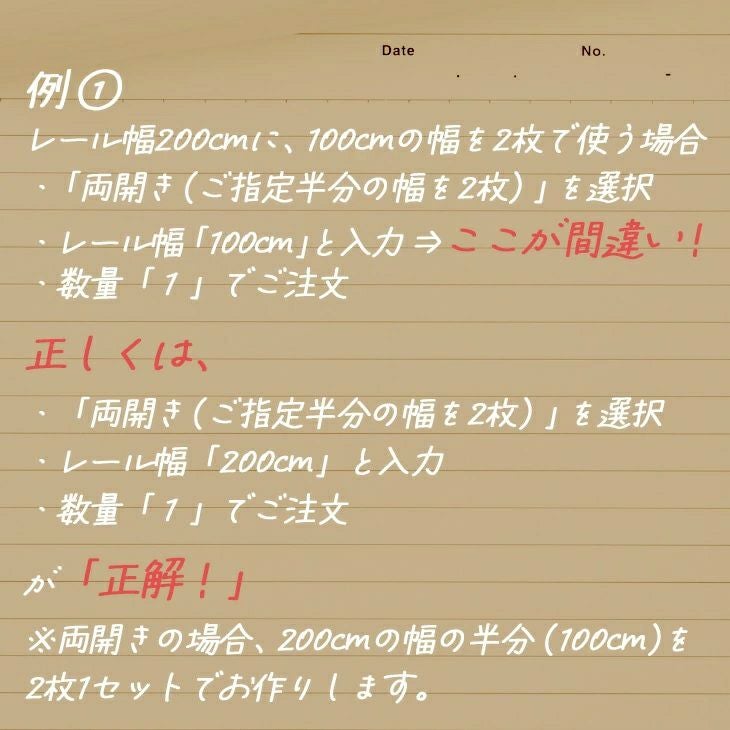 Date
No.
例①
レール幅200cmに、100cmの幅を2枚で使う場合
・「両開き(ご指定半分の幅を2枚)」を選択
・レール幅「100cm」と入力⇒ここが間違い!
・数量「1」でご注文
正しくは、
・「両開き(ご指定半分の幅を2枚)」を選択
・レール幅「200cm」と入力
・数量「1」でご注文
が「正解!」
※両開きの場合、200cmの幅の半分(100cm)を
2枚1セットでお作りします。